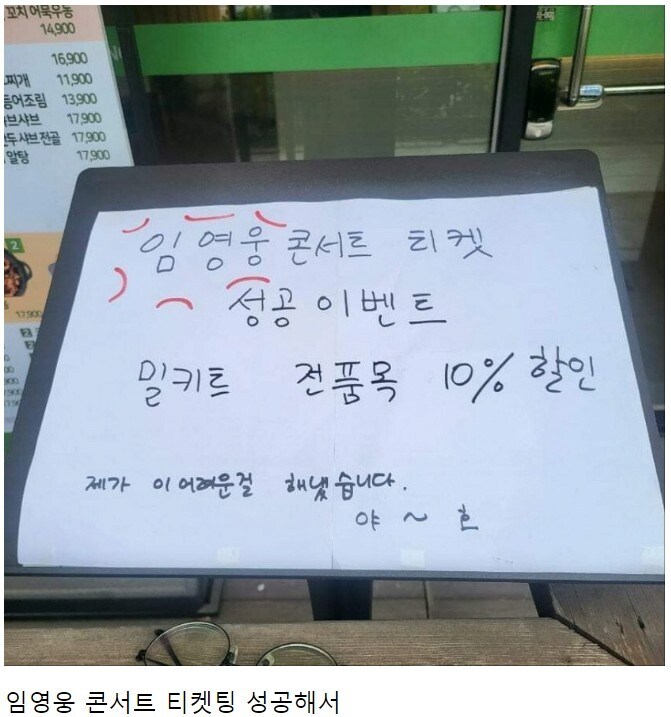 꼬치어묵우동
14,900
16,900
찌개 11,900
등어조림 13,900
브샤브 17,900
두샤브전골 17,900
알탕 17,900
2
17,900
임영웅 콘서트 티켓
성공 이벤트
밀키트 전품목 10% 할인
제가 이 어려운걸 해냈습니다.
야 ~ 호
임영웅 콘서트 티켓팅 성공해서